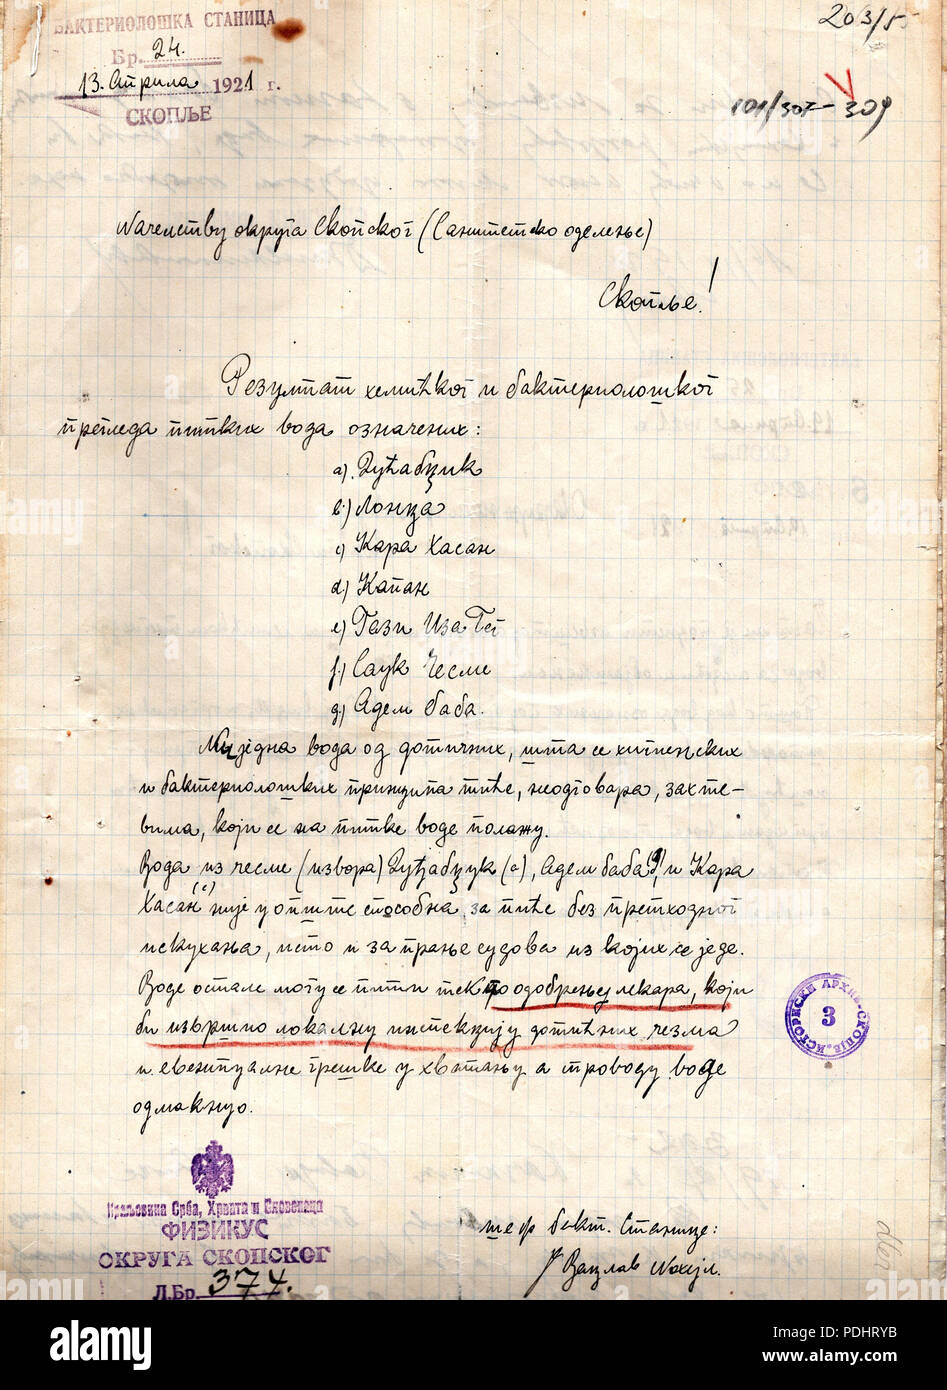 БАКТЕРИОЛОШКА СТАНИЦА
Бр. 24.
13. Априла 1921 г.
СКОПЉЕ
203/55
101/307-309
Начелству округа Скопског (Санитетско оделење)
Скопље!
Резултат хемичког и бактериолошког
прегледа питких вода означених:
a)
b) Лонџа
c) Кара Хасан
d) Капан
e) Гази Иза Бег
f) Саук Чесме
g) Адем баба.
Ни једна вода од дотичних, шта се хигиенских
и бактериолошких принципа тиће, неодговара, захте-
вима, који се на питке воде полажу.
Вода из чесме (извора) (a), Адем баба g) и Кара
Хасан (c) није у опште способна, за пиће без претходног
искухања, исто и за прање судова из којих се једе.
Воде остале могу се пити тек по одобрењу лекара, који
би извршио локалну инспекцију дотичних чезма
и евентуалне грешке у хватању а проводу воде
одмакнуо.
ИСТОРИСКИ АРХИВ-СКОПЈЕ
3
Краљевина Срба, Хрвата и Словенаца
ФИЗИКУС
ОКРУГА СКОПСКОГ
Л.Бр. 374.
шеф бакт. Станице:
Вацлав
alamy
Image ID: PDHRYB
www.alamy.com